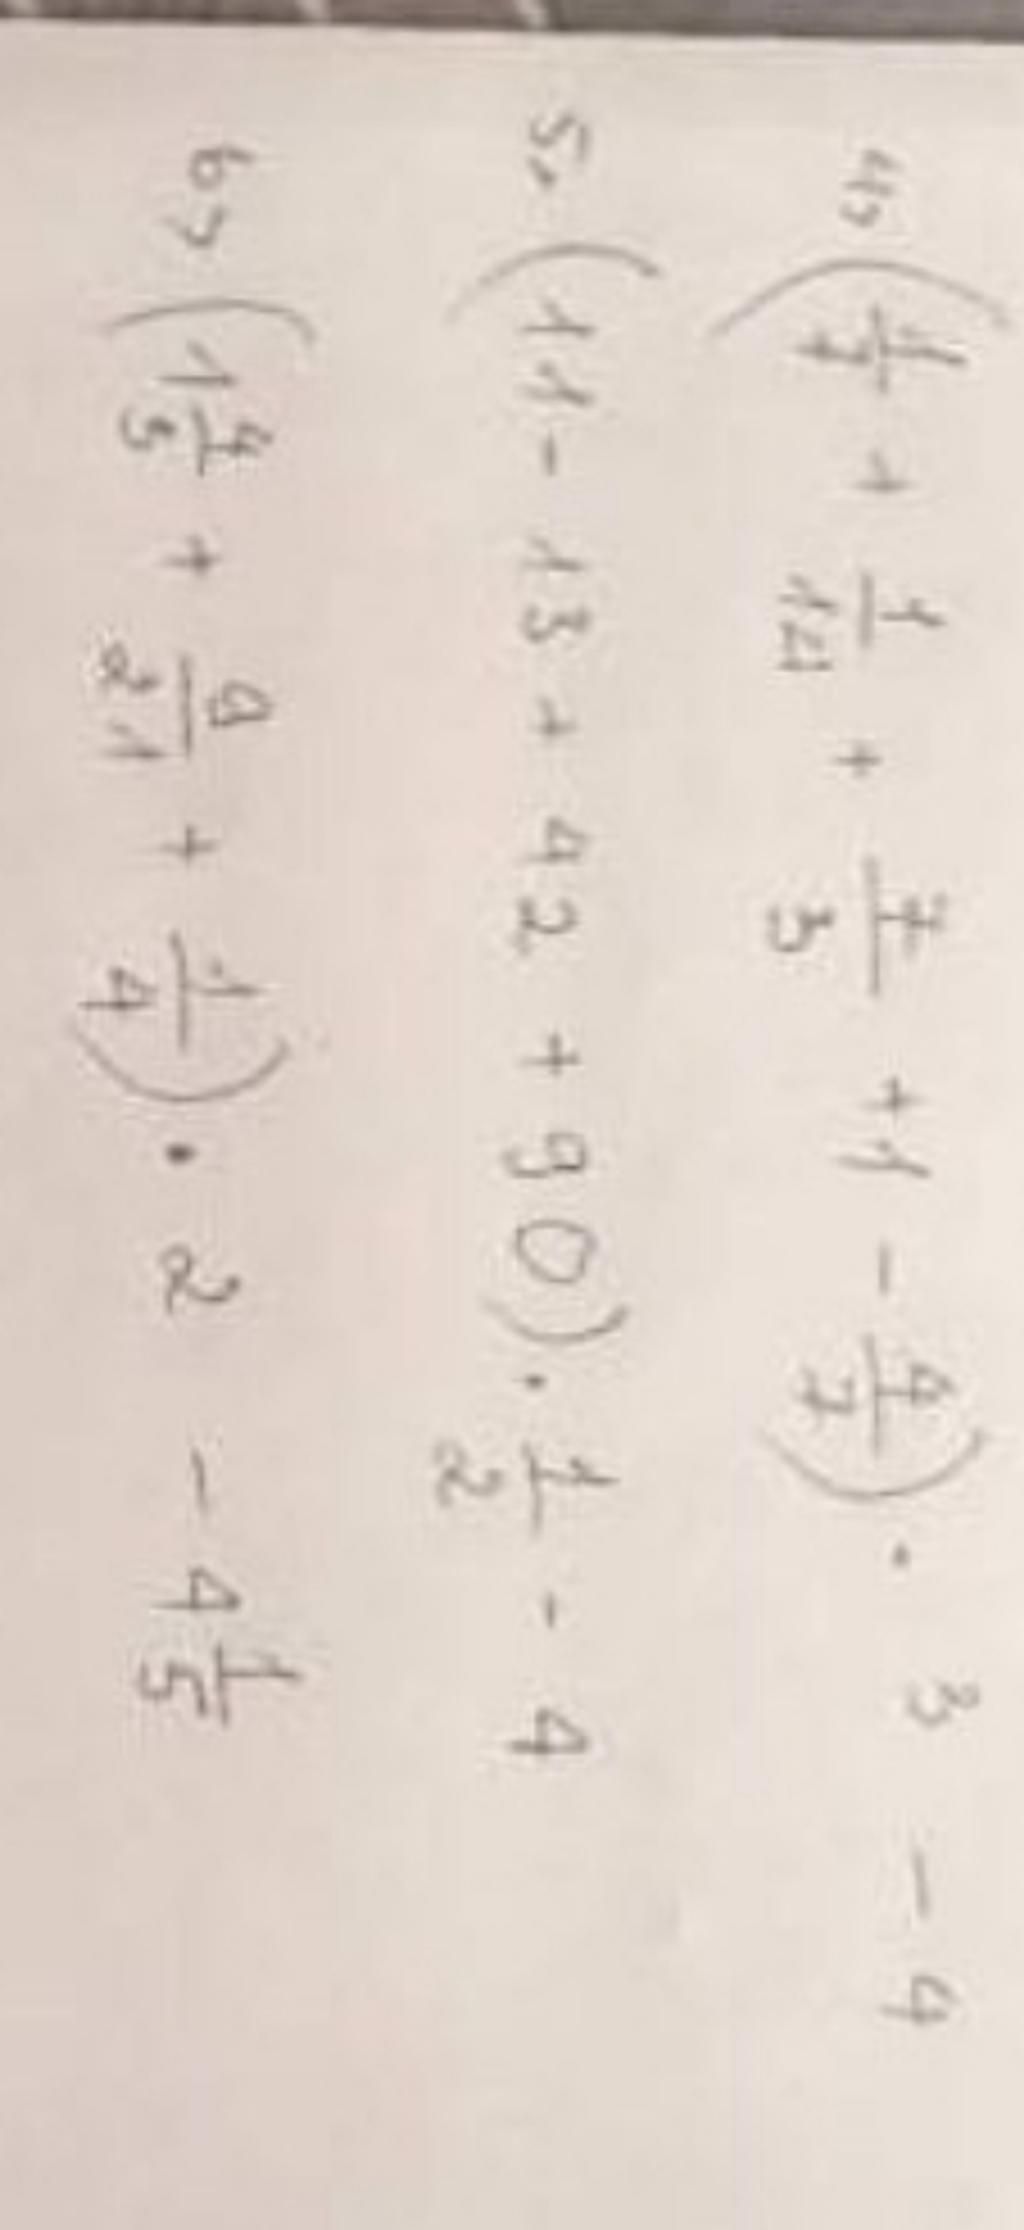 4, (1/7 + 1/14 + 7/3 + 1 - 4/7) · 3 - 4
5, (11 - 13 + 42 + 90) · 1/2 - 4
6, (1 4/5 + 9/21 + 1/4) · 2 - 4 1/5